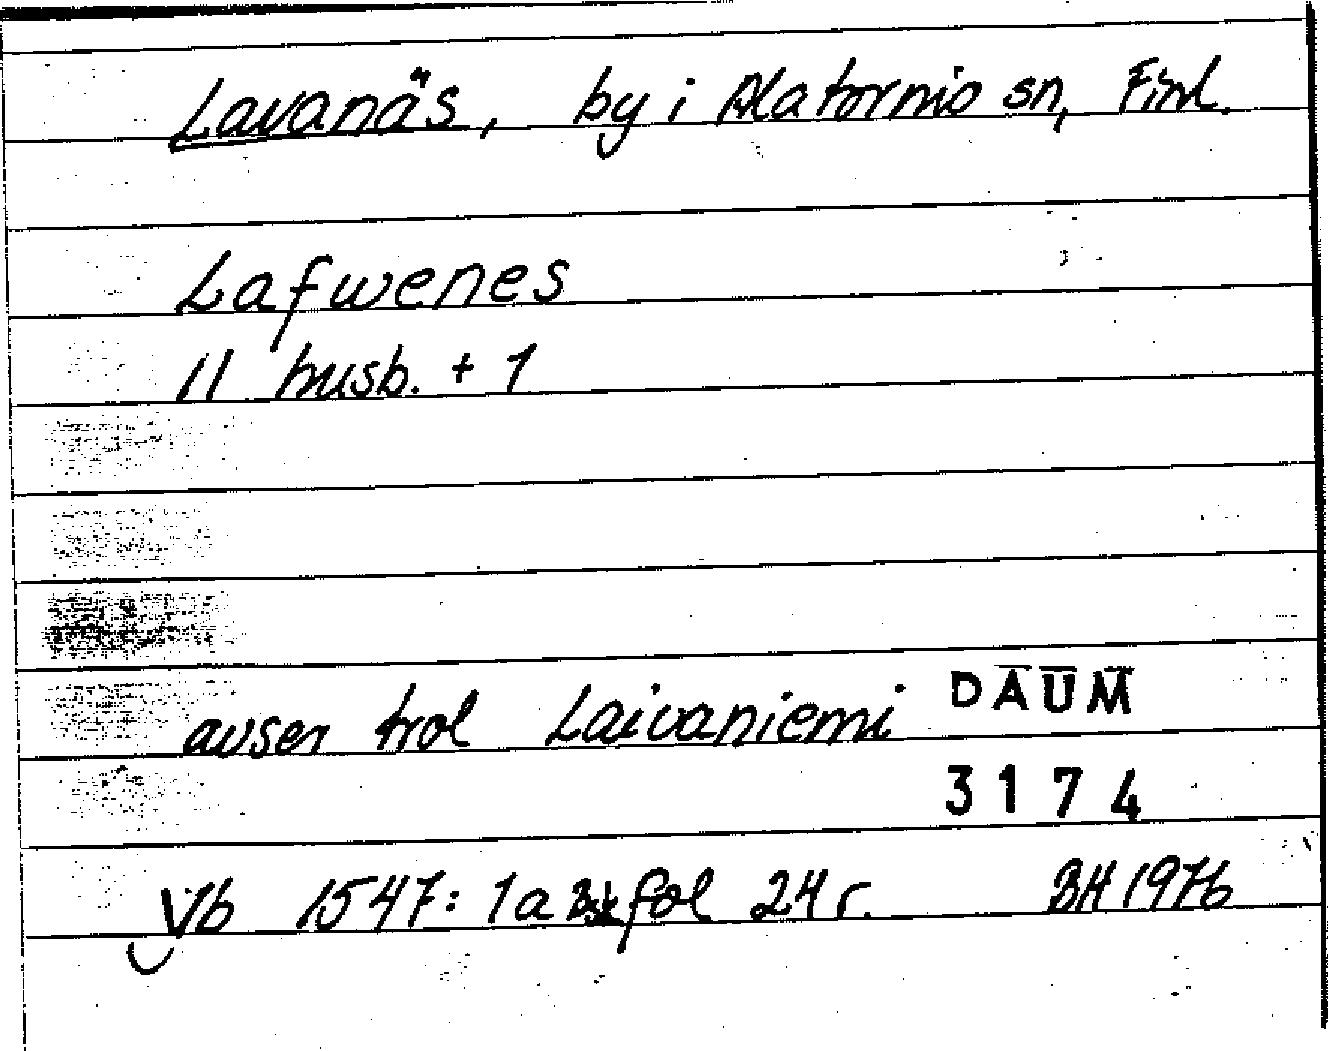 Lavanäs, by i Alatornio sn, Finl.
Lafwenes
11 husb. + 1
avser trol Laivaniemi
DAUM
3174
Vb 1547: 1a fol 24 r. BH 1976